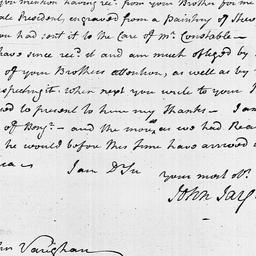 you mention having recd. from your Brother for me
ale President, engraved from a Painting of Stew
ou had sent it to the Care of Mr. Constable—
have since recd. it and am much obliged by
of your Brothers attention, as well as by
respecting it. When next you write to your
ed to present to him my Thanks— I am
of Benj. — and the more, as we had Rea
he would before this Time have arrived
ca— I am Dr Sir
your most ob.
John Jay.
hn Vaughan